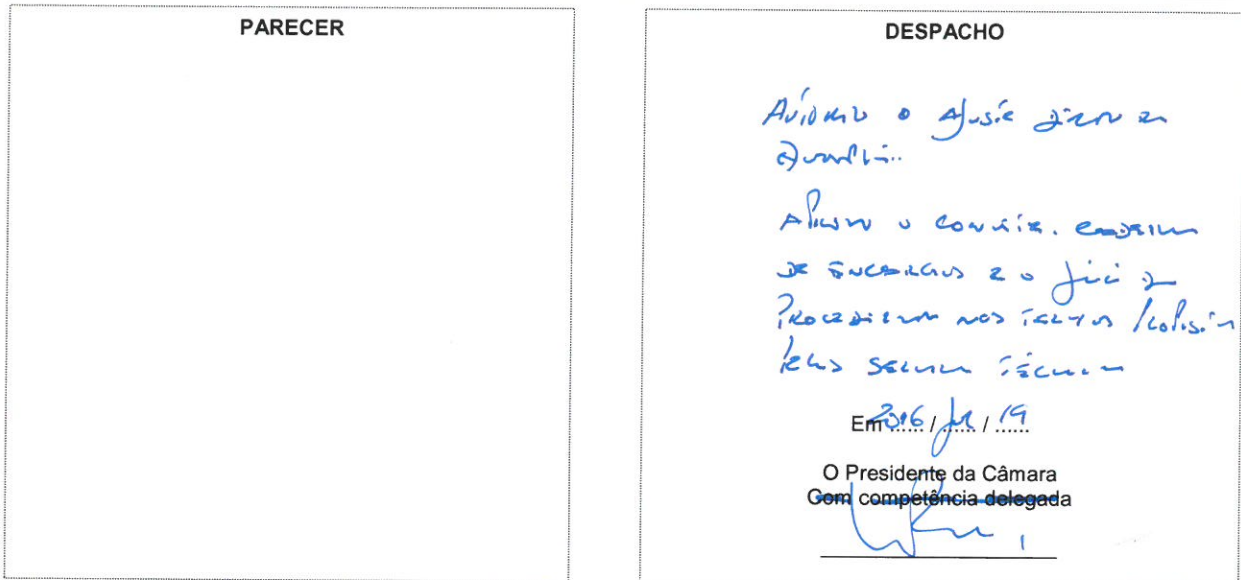 PARECER
DESPACHO
Autorizo o Ajuste direto em
Aprovo o convite, caderno
de encargos e o júri do
procedimento nos termos propostos
pelos serviços técnicos
Em 2016 / jul / 19
O Presidente da Câmara
Com competência delegada